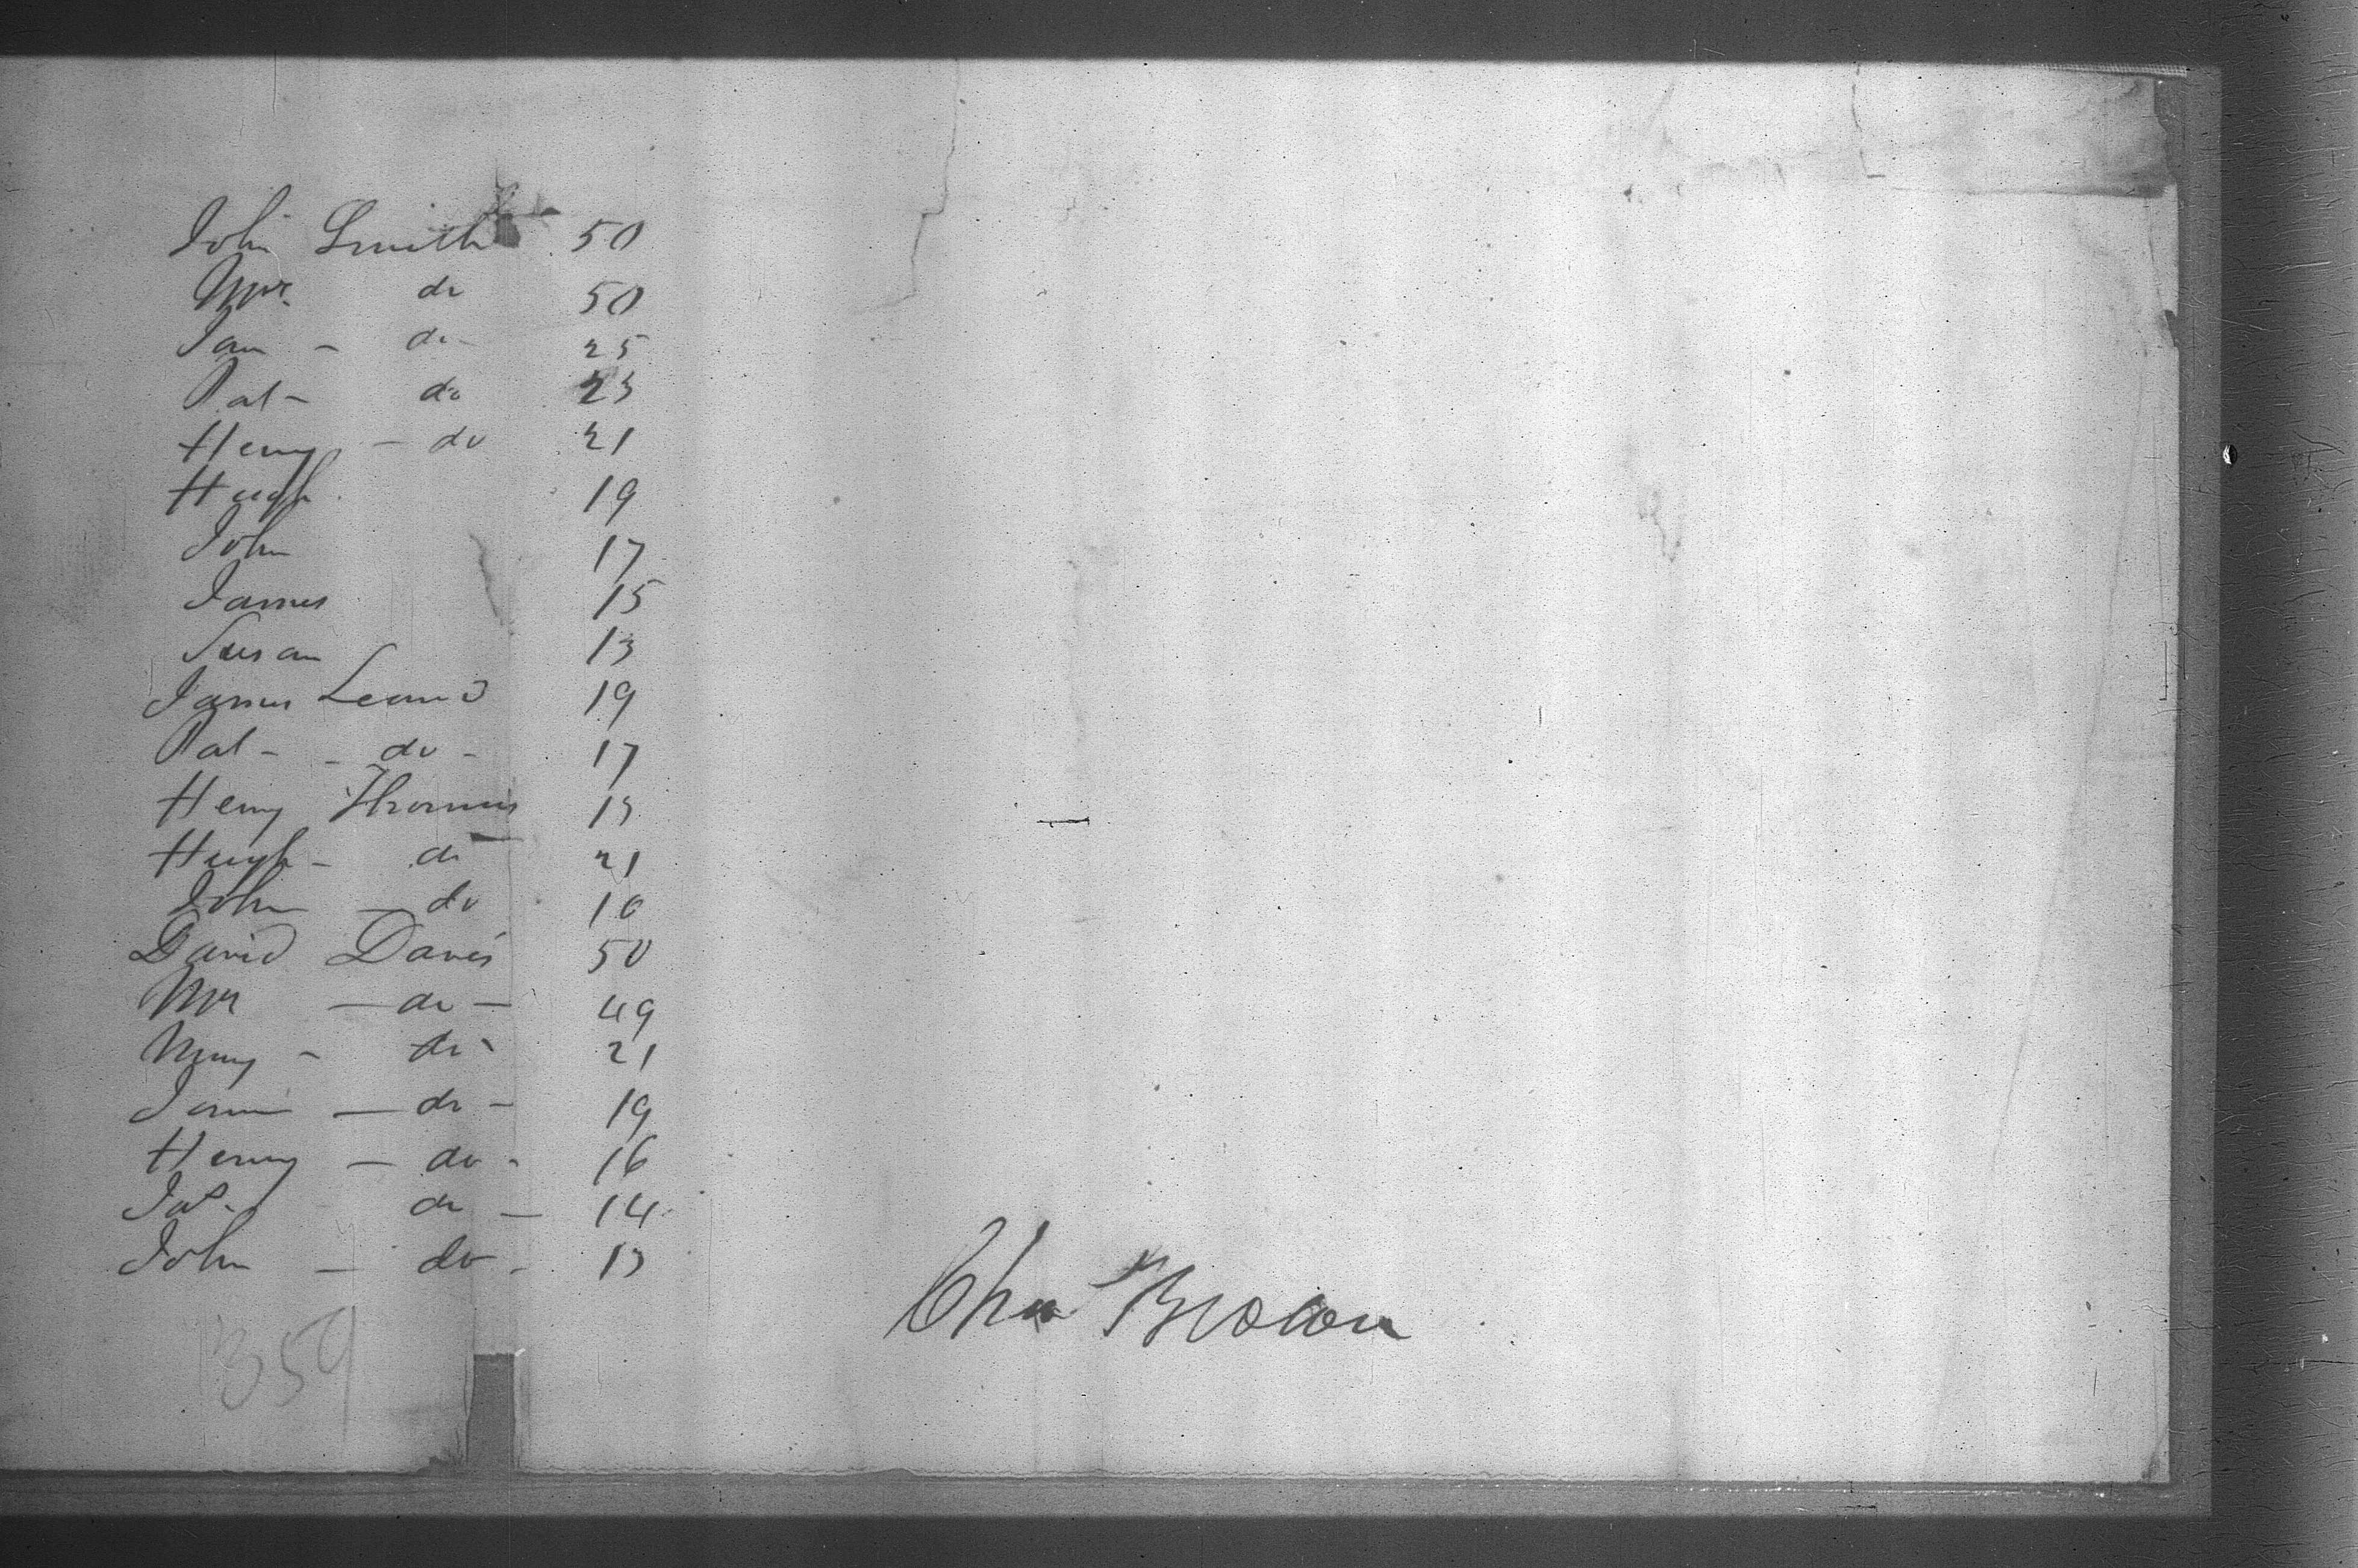 John Smith 50
Mrs. do 50
Jam - do - 25
Pat - do 23
Henry - do 21
Hugh 19
John 17
James 15
Susan 13
James Leonard 19
Pat - - do - 17
Henry Thomas 15
Hugh - do 21
John - do 10
David Davis 50
Mrs - do - 49
Mary - do - 21
James - do - 19
Henry - do - 16
Jas. do - 14
John - do - 13
Chas Brown
359